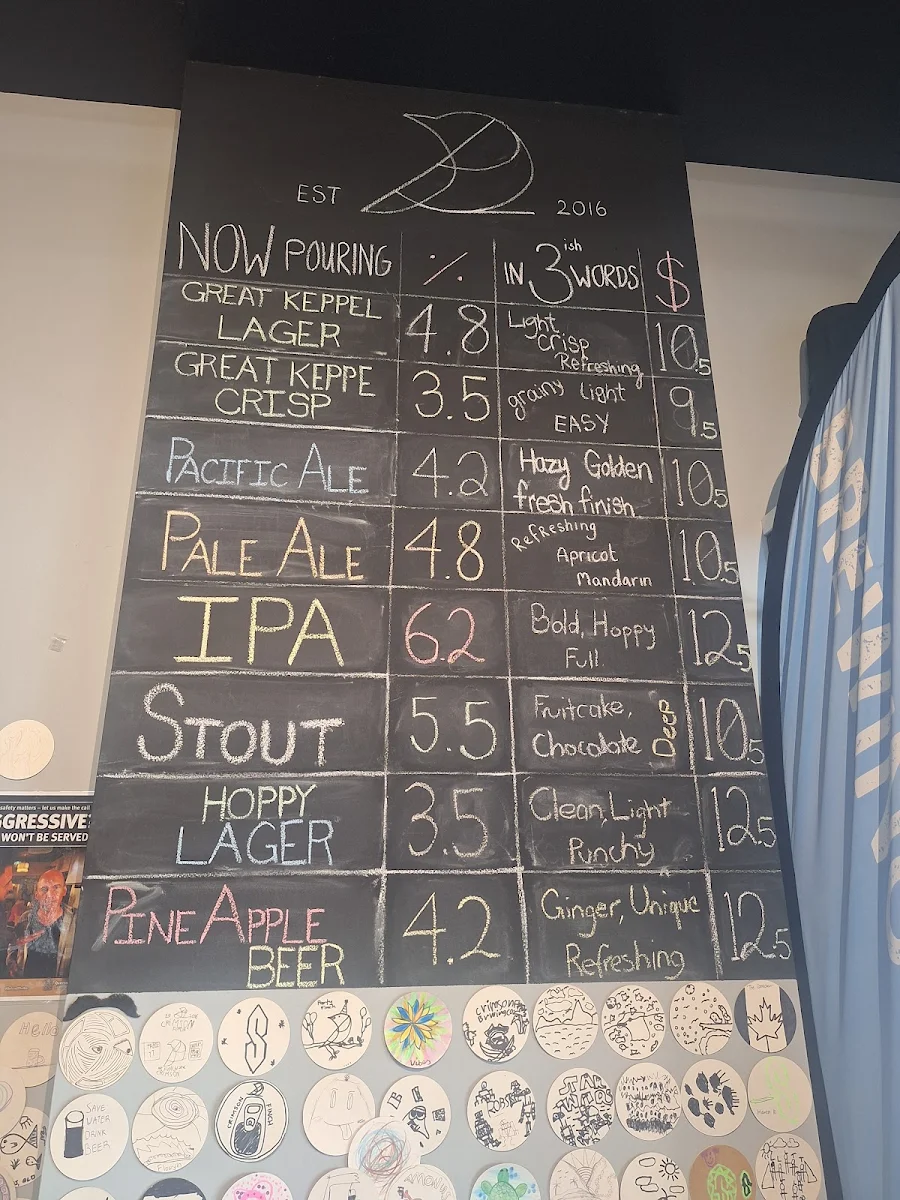 EST 2016
NOW POURING % IN 3ish WORDS $
GREAT KEPPEL
LAGER
4.8
Light
Crisp
Refreshing
10.5
GREAT KEPPE
CRISP
3.5
grainy light
EASY
9.5
PACIFIC ALE
4.2
Hazy Golden
fresh finish
10.5
PALE ALE
4.8
Refreshing
Apricot
Mandarin
10.5
IPA
6.2
Bold, Hoppy
Full.
12.5
STOUT
5.5
Fruitcake,
Chocolate
Deep
10.5
HOPPY
LAGER
3.5
Clean, Light
Punchy
12.5
PINEAPPLE
BEER
4.2
Ginger, Unique
Refreshing
12.5
safety matters – let us make the
GGRESSIVE?
WON'T BE SERVED
Hello
SAVE
WATER
DRINK
BEER
CRIMSON
FINCH
STAR
WARS